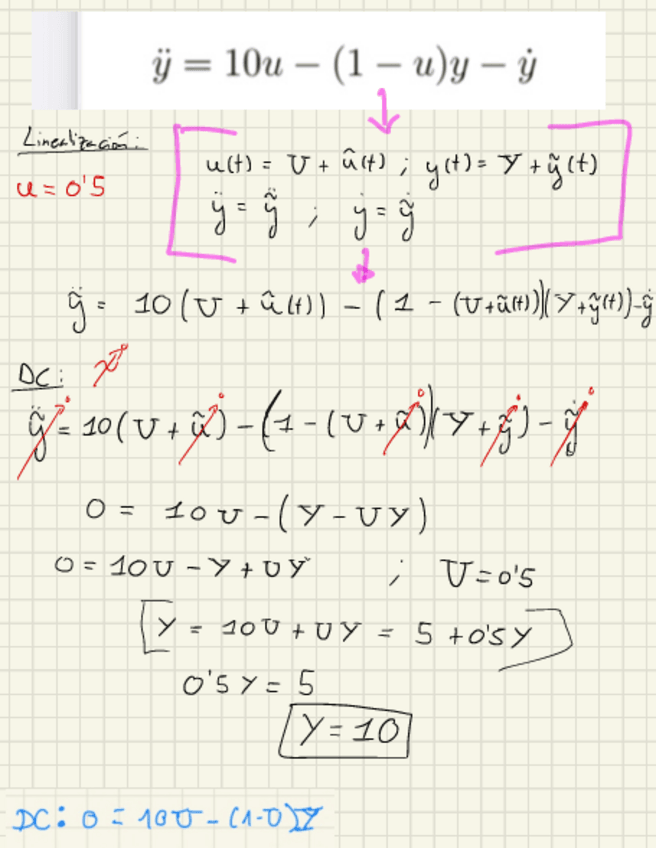 ÿ = 10u − (1 − u)y − ẏ
Linealización:
u = 0'5
u(t) = U + û(t) ; y(t) = Y + ỹ(t)
ÿ = ỹ̈ ; ẏ = ỹ̇
ỹ̈ = 10(U + û(t)) − (1 − (U+ũ(t)))(Y+ỹ(t))−ỹ̇
DC:
ỹ̈ = 10(U + ũ) − (1 − (U + ũ))(Y + ỹ) − ỹ̇
0 = 10U − (Y − UY)
0 = 10U − Y + UY ; U = 0'5
Y = 10U + UY = 5 + 0'5Y
0'5Y = 5
Y = 10
DC: 0 = 10U − (1-U)Y